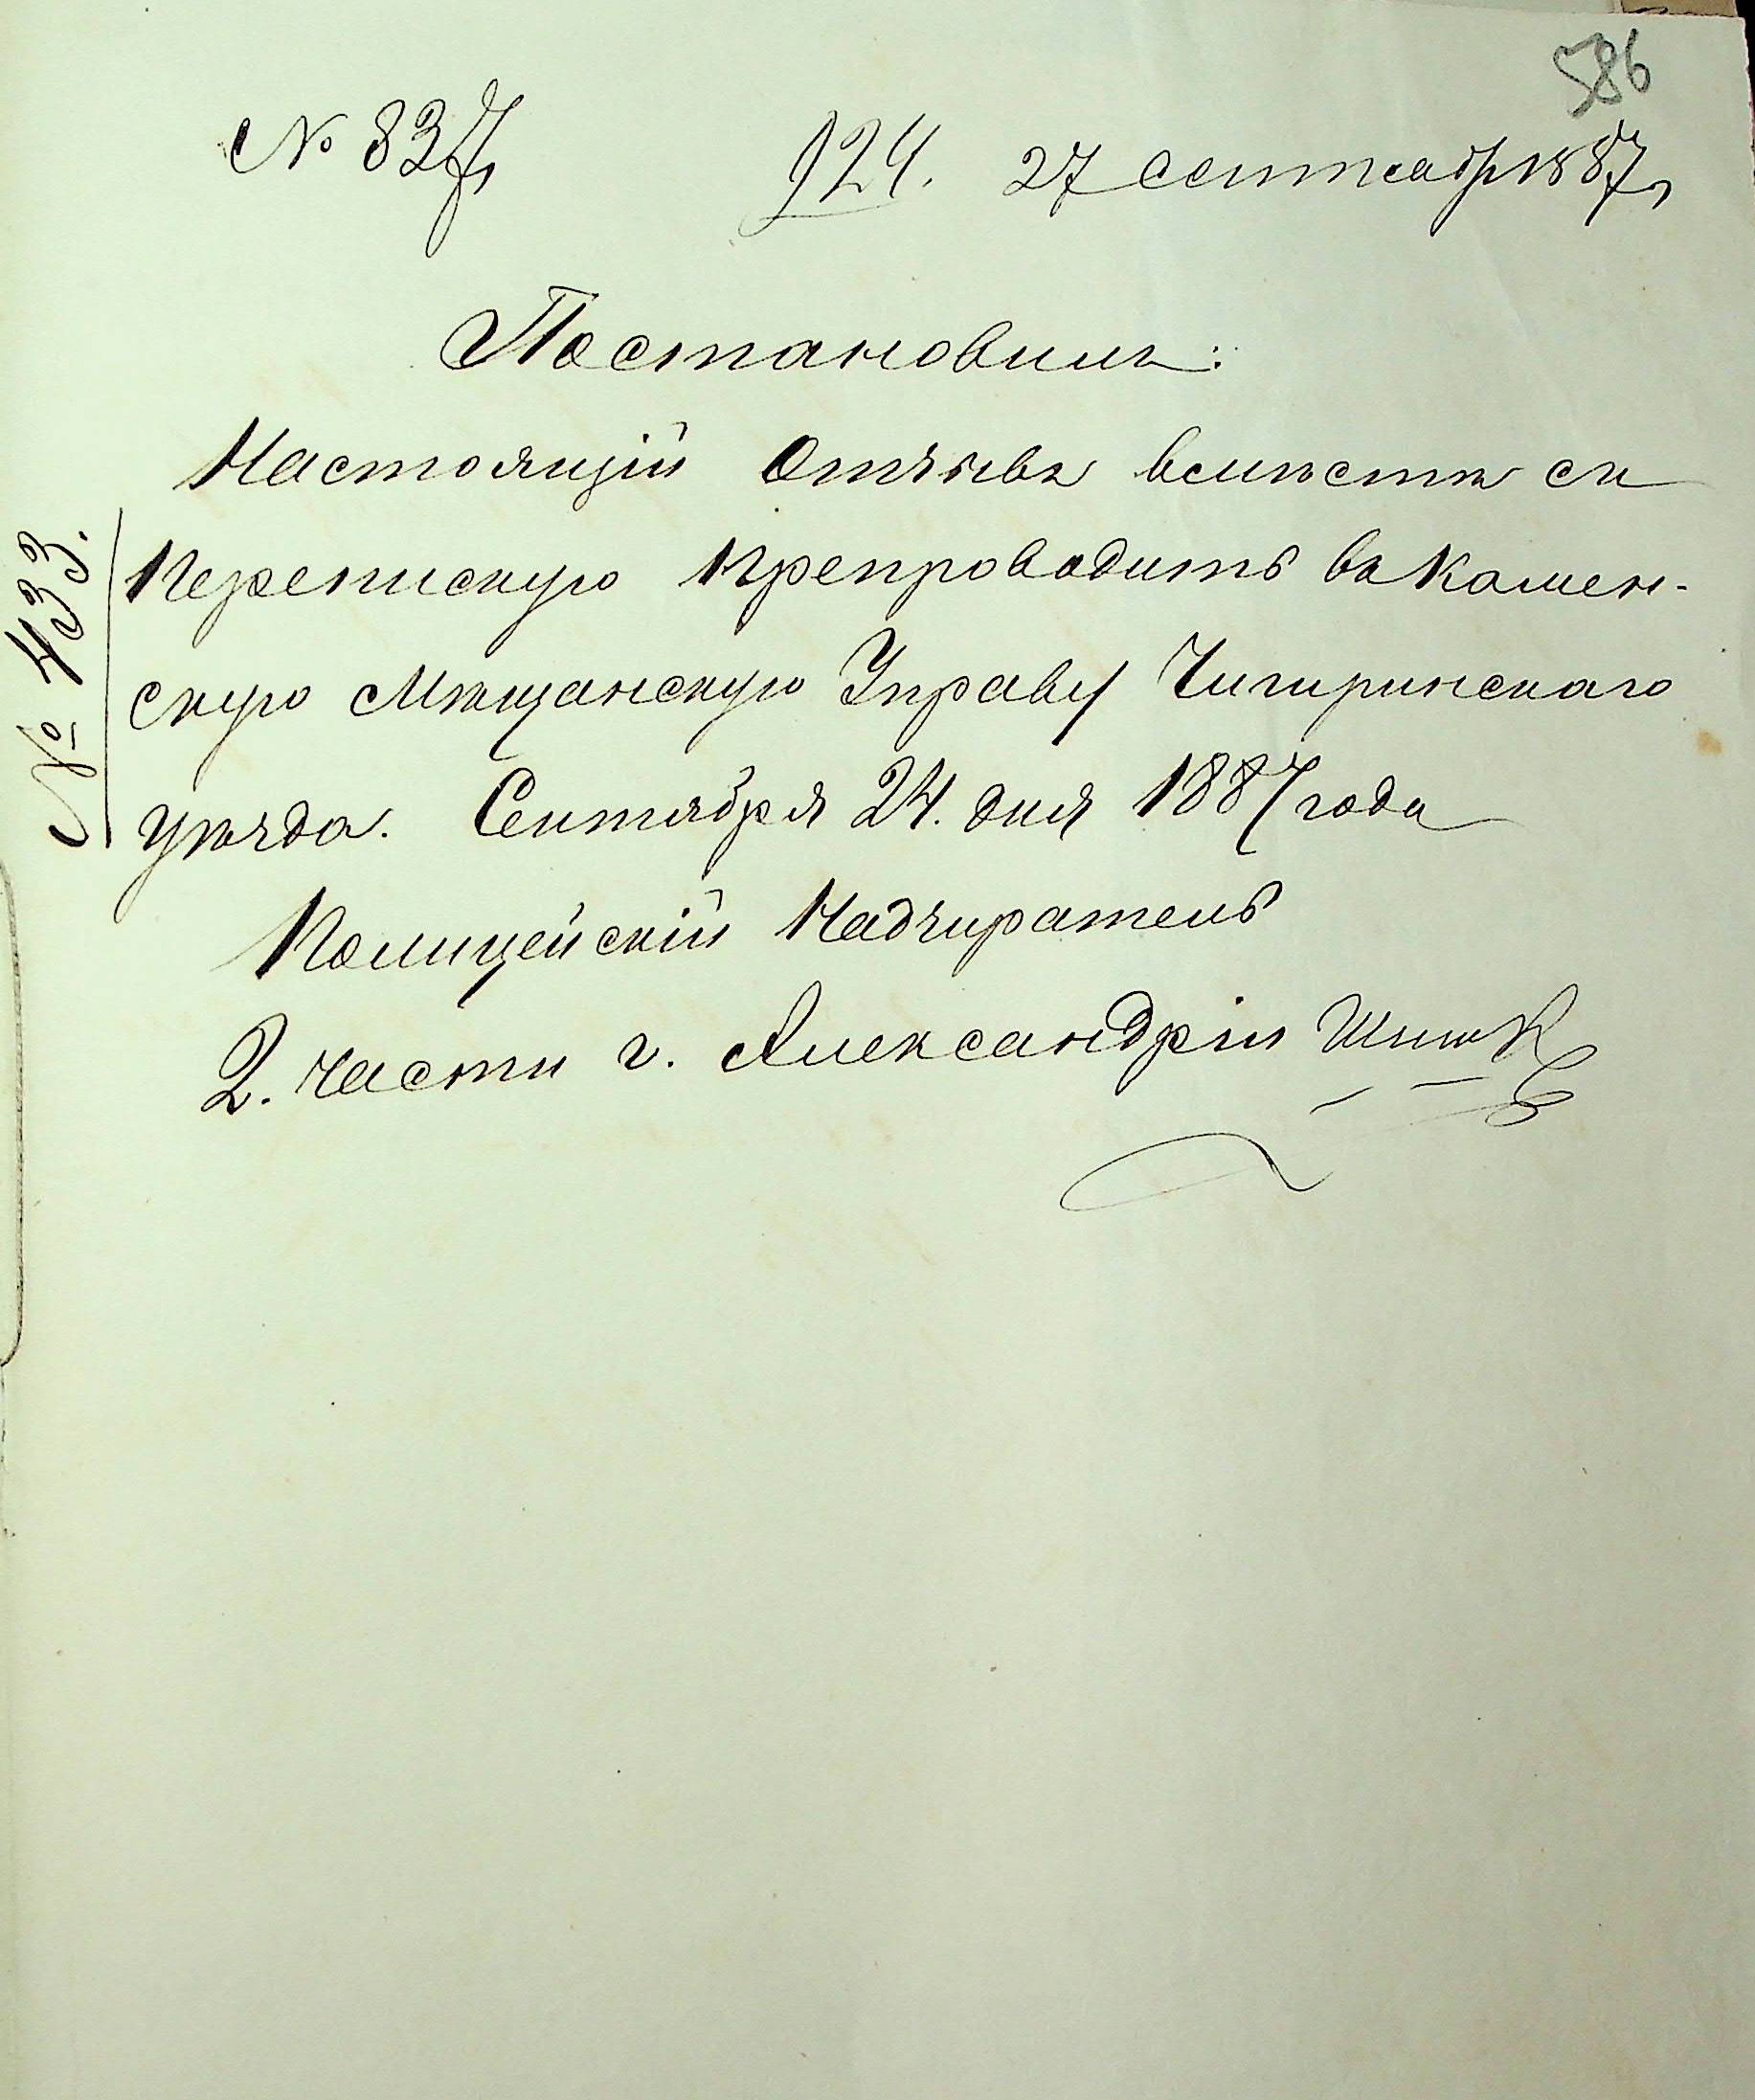 586
№ 837
924. 27 сентября 1887
Постановилъ:
Настоящій Отзывъ вмѣстѣ съ
Перепискую препроводить въ Камен-
скую Мѣщанскую Управу Чигиринскаго
уѣзда. Сентября 24. дня 1887 года
Полицейскій Надзиратель
2. части г. Александріи
№ 433.